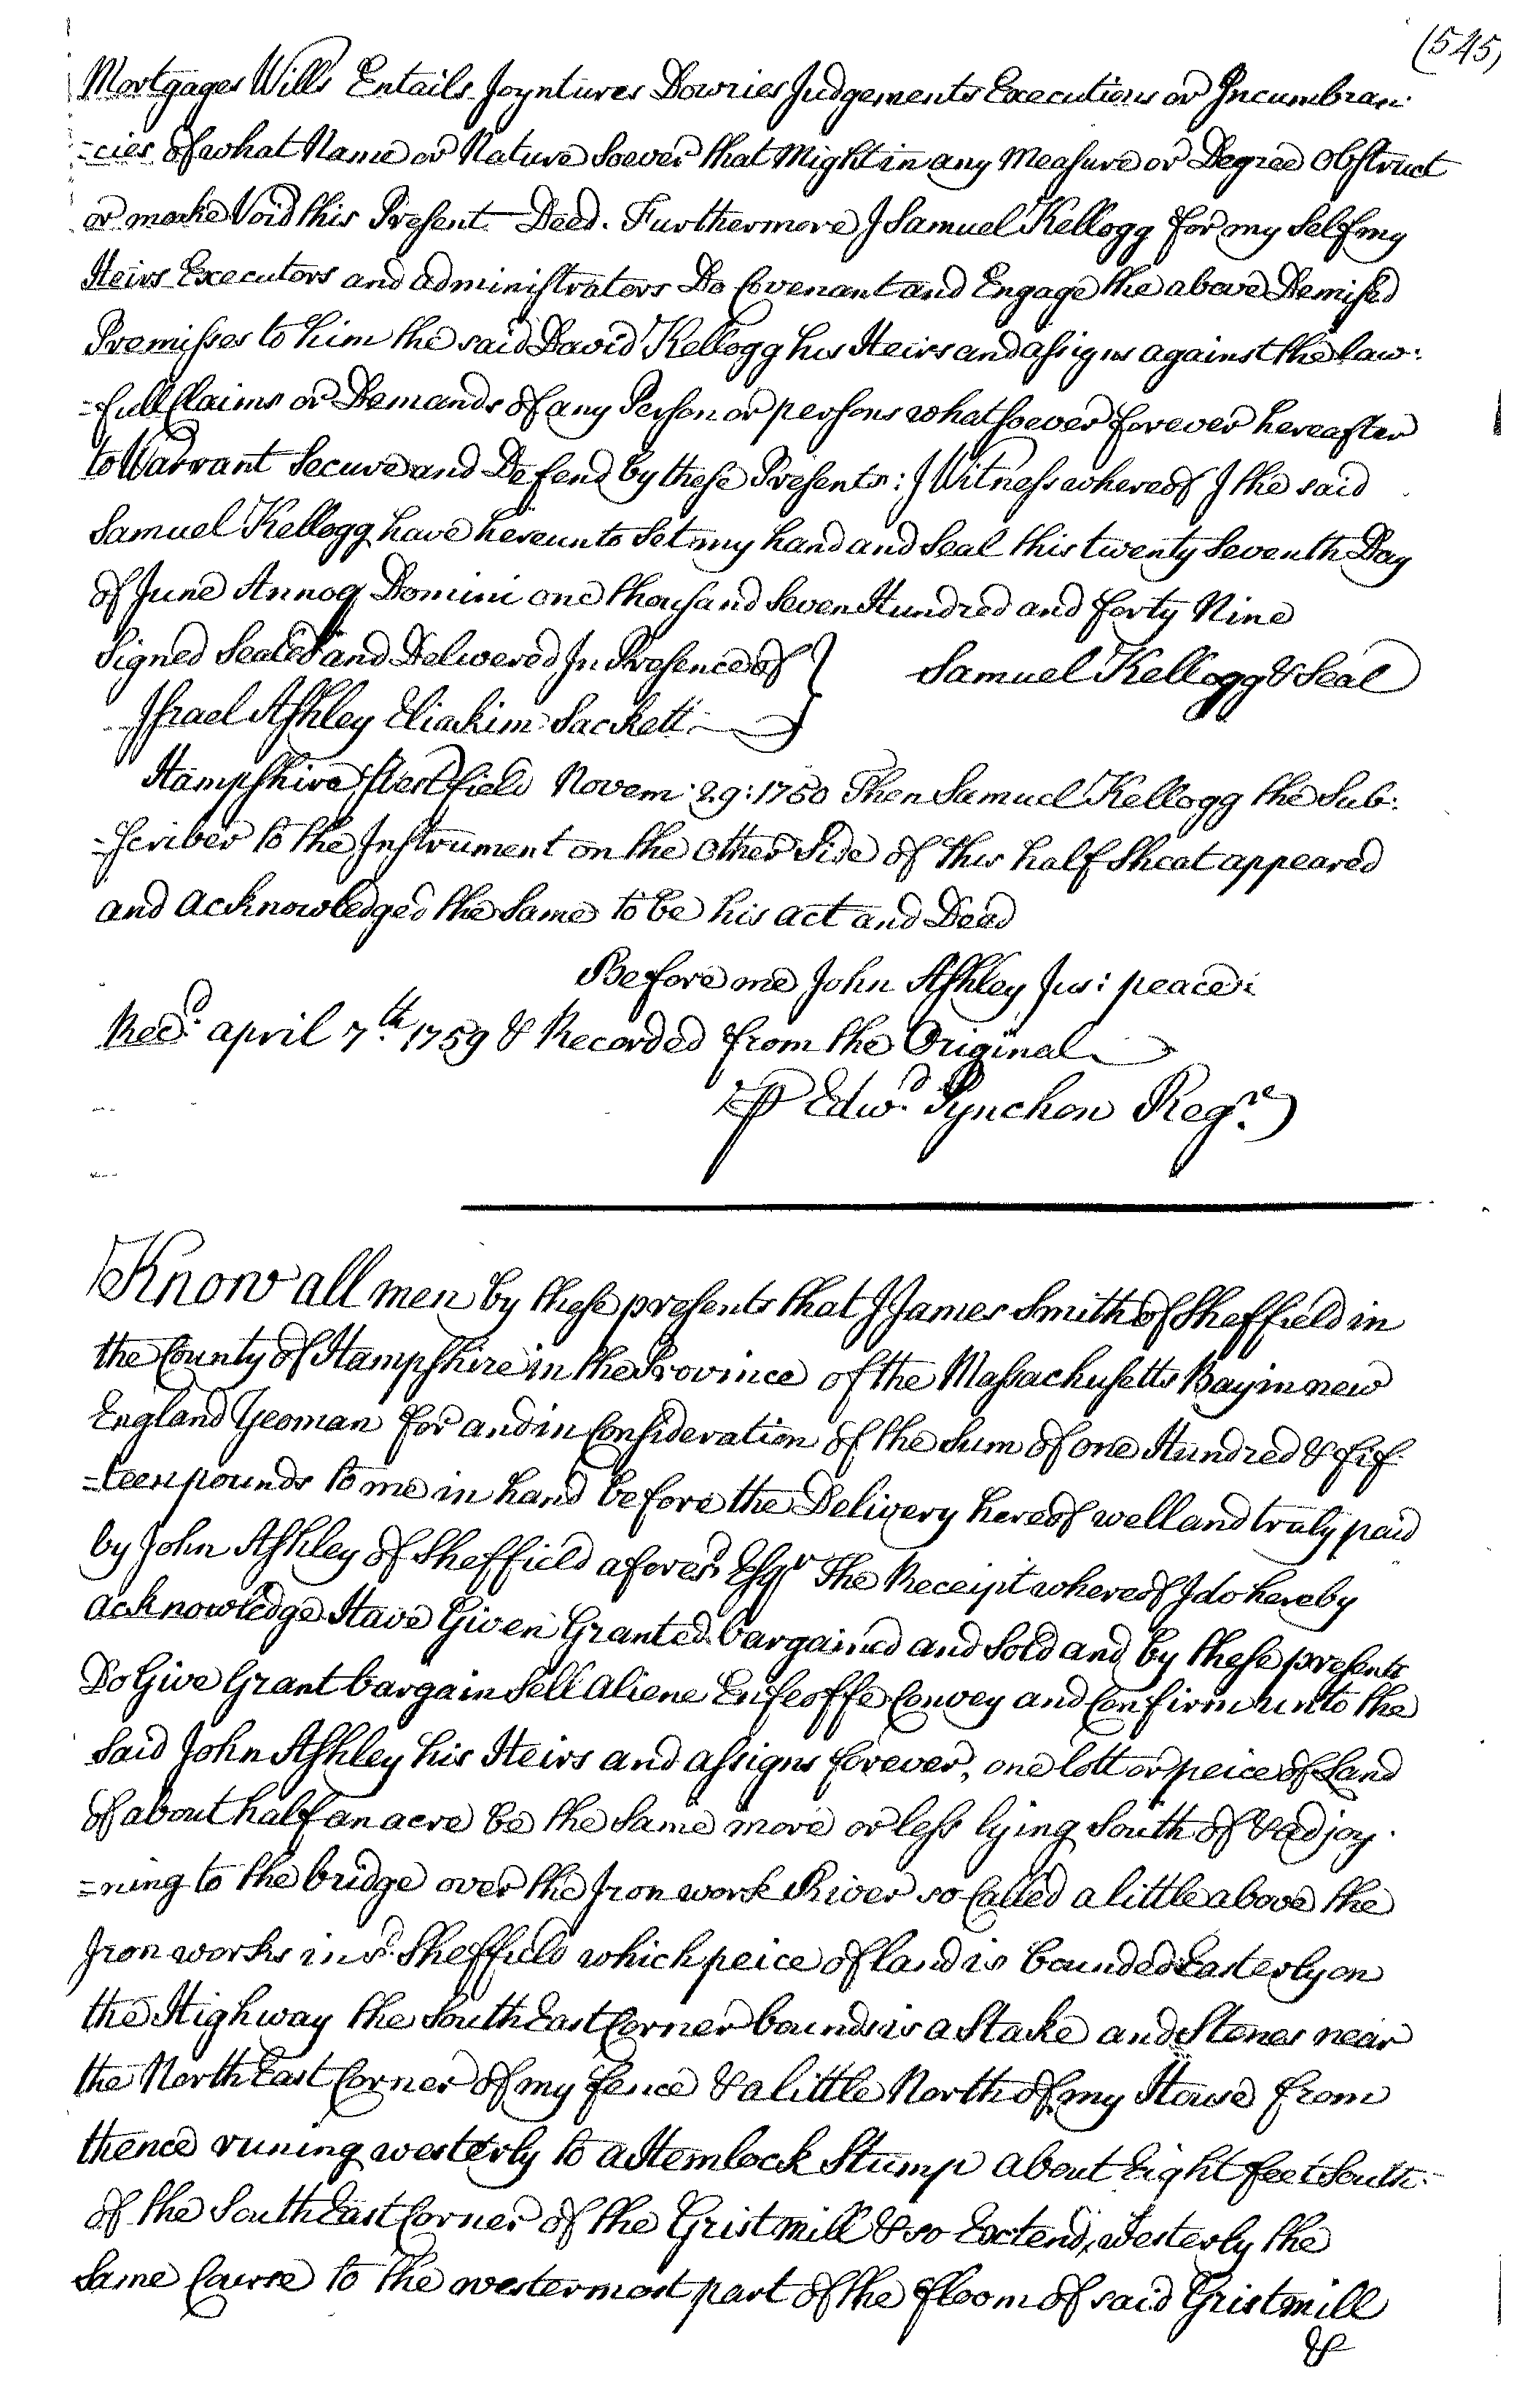 (545)
Mortgages Wills Entails Joyntures Dowries Judgements Executions or Incumbran:
=cies of what Name or Nature Soever that Might in any Measure or Degree Obstruct
or make Void this Present Deed. Furthermore I Samuel Kellogg for my Self my
Heirs Executors and administrators Do Covenant and Engage the above Demised
Premisses to him the said David Kellogg his Heirs and assigns against the law:
=full Claims or Demands of any Person or persons whatsoever forever hereafter
to Warrant Secure and Defend by these Presents: I Witness whereof I the said
Samuel Kellogg have hereunto Set my hand and Seal this twenty Seventh Day
of June Annoq Domini one thousand Seven Hundred and forty Nine
Signed Sealed and Delivered In Presence of } Samuel Kellogg & Seal
Israel Ashley Eliakim Sackett
Hampshire Westfield Novem: 29: 1750 Then Samuel Kellogg the Sub:
=scriber to the Instrument on the Other Side of this half Sheat appeared
and acknowledged the Same to be his act and Dead
Before me John Ashley Jus: peace:
Recd. april 7th. 1759 & Recorded from the Original
P Edwd. Pynchon Regr.
Know all men by these presents that I James Smith of Sheffield in
the County of Hampshire in the Province of the Massachusetts Bay in new
England Yeoman for and in Consideration of the Sum of one Hundred & fif:
=teen pounds to me in hand before the Delivery hereof well and truly paid
by John Ashley of Sheffield aforesd. Esqr The Receipt whereof I do hereby
acknowledge Have Given Granted bargained and Sold and by these presents
Do Give Grant bargain Sell aliene Enfeoffe Convey and Confirm unto the
Said John Ashley his Heirs and assigns forever, one lott or peice of Land
of about half an acre be the Same more or less lying South of & adjoy:
=ning to the bridge over the Iron work River so Called a little above the
Iron works in sd. Sheffield which peice of land is bounded Easterly on
the Highway the South East Corner bounds is a Stake and Stones near
the North East Corner of my fence & a little North of my House from
thence runing westerly to a Hemlock Stump about Eight feet South
of the South East Corner of the Grist mill & so Extend, Westerly the
Same Course to the westermost part of the floom of said Grist mill
&